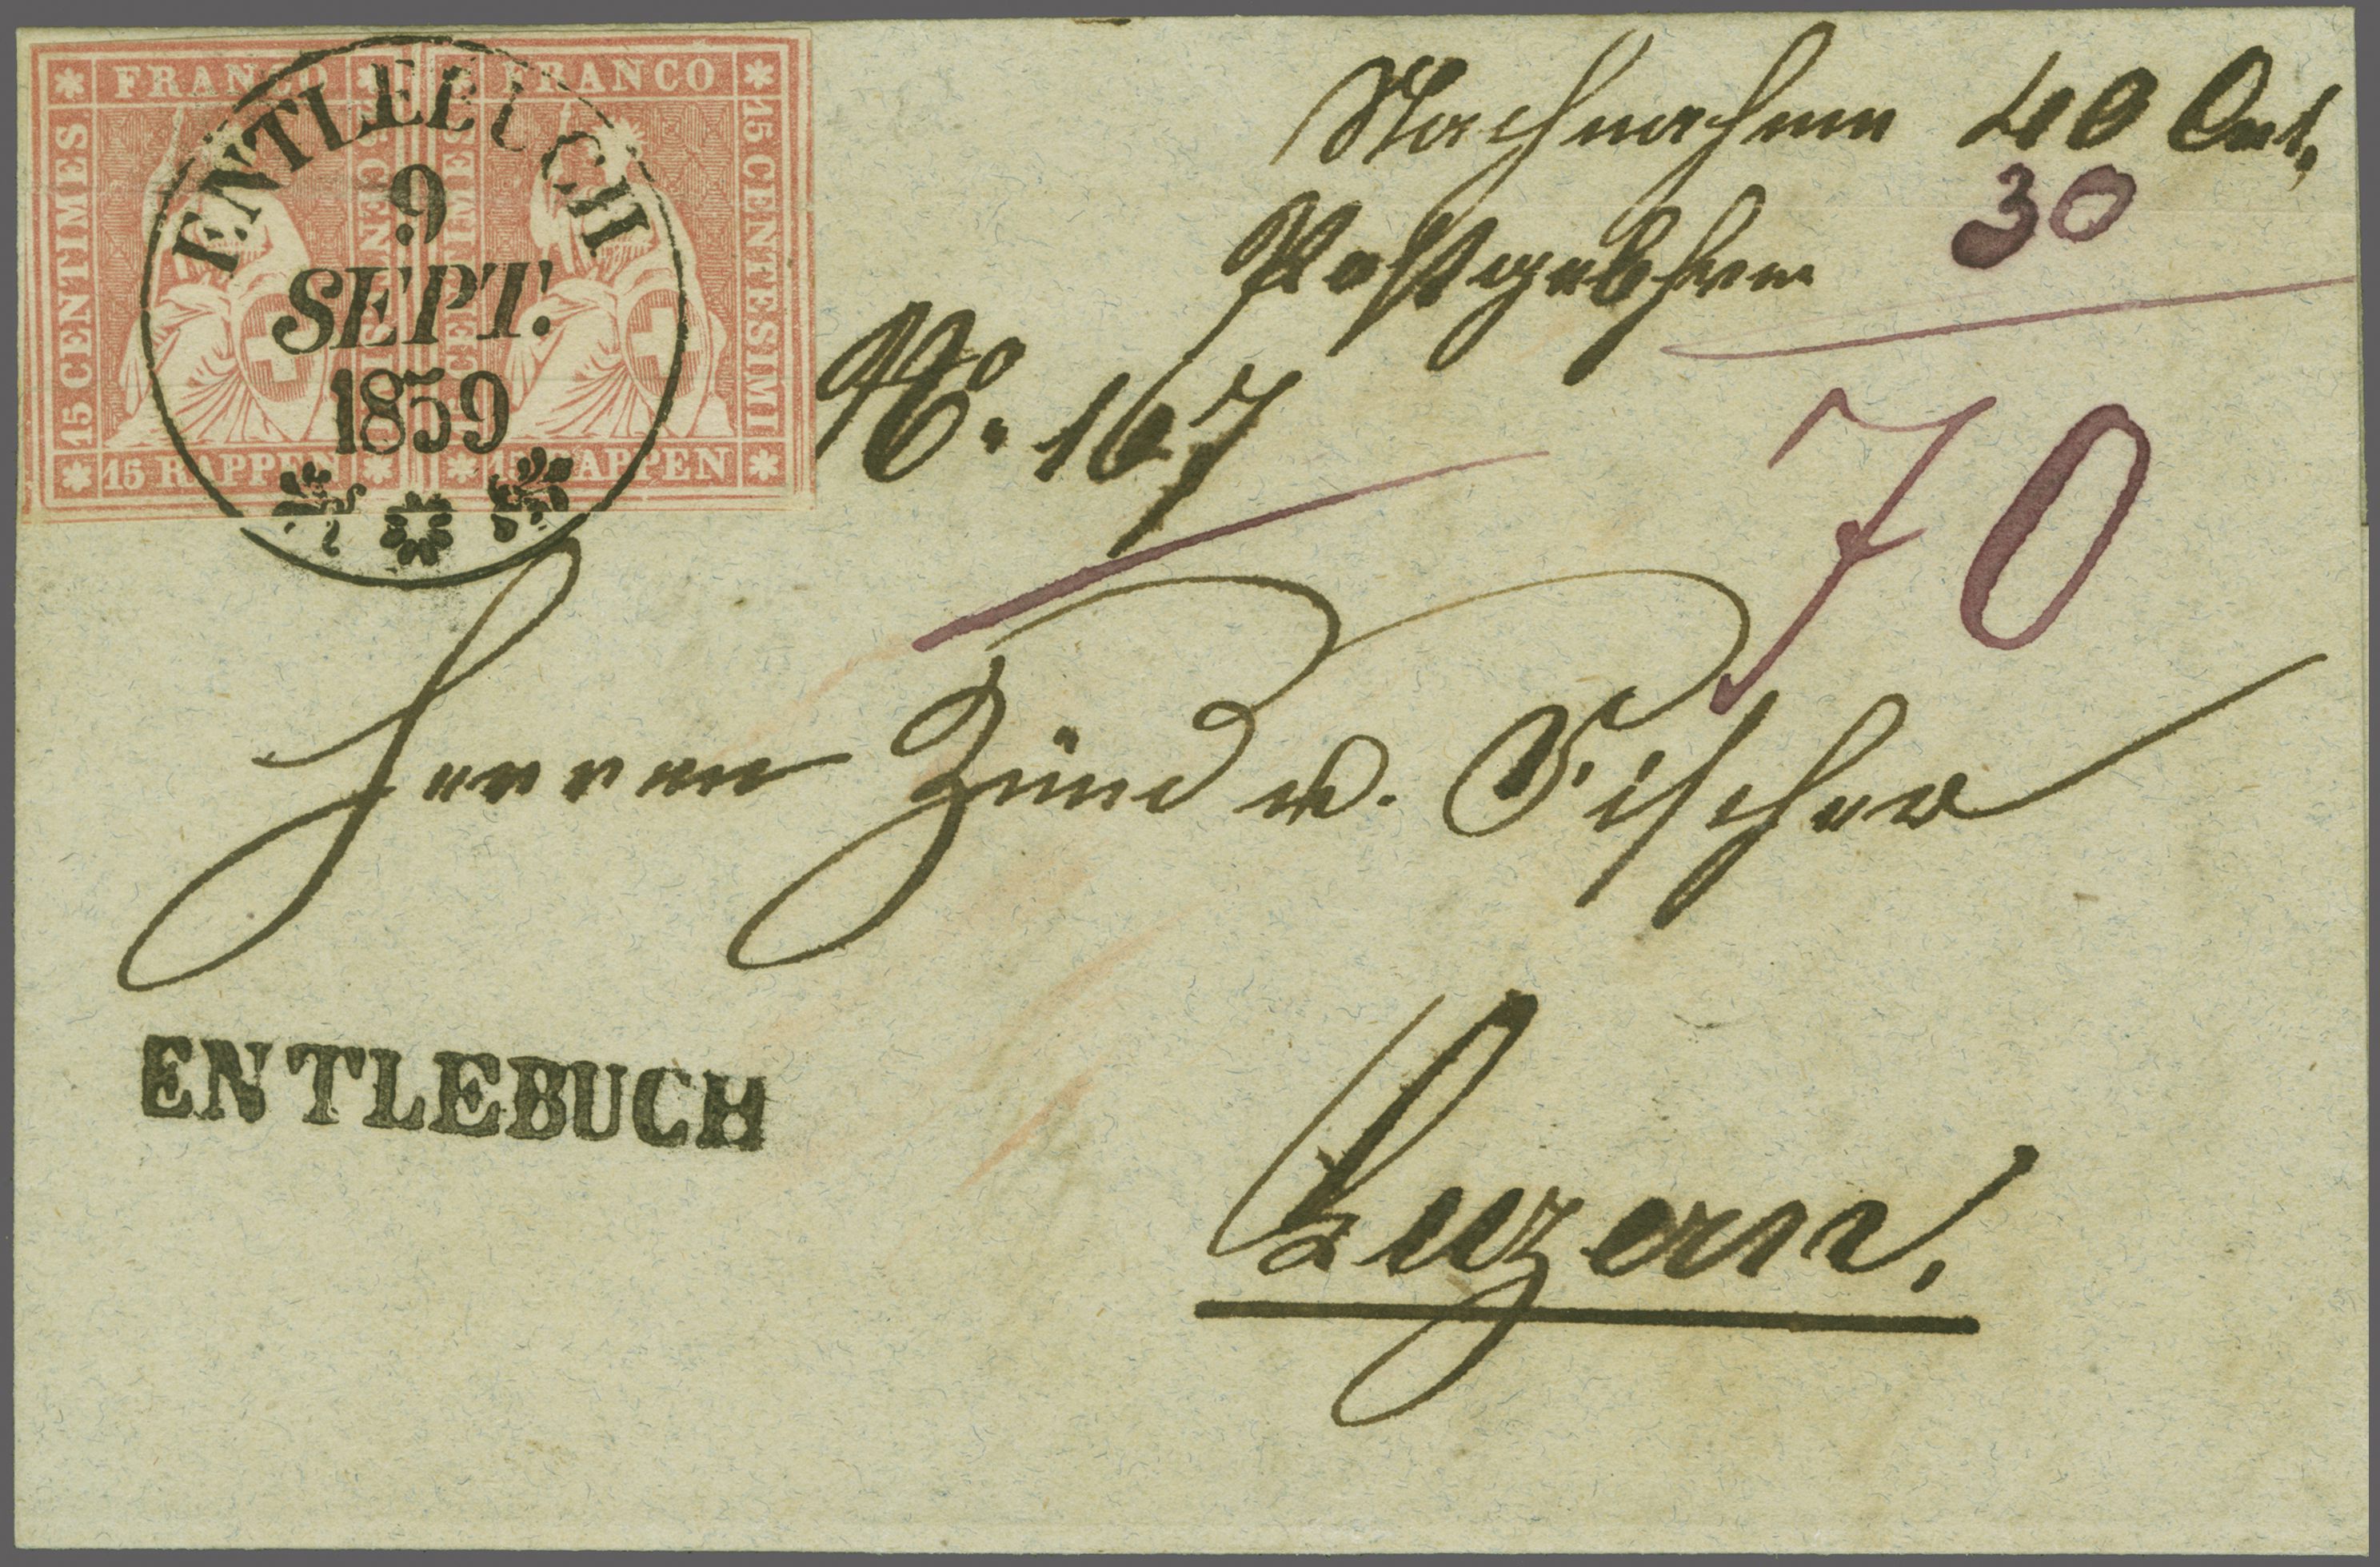 FRANCO FRANCO
15 CENTIMES 15 CENTESIMI 15 CENTIMES 15 CENTESIMI
15 RAPPEN 15 RAPPEN
ENTLEBUCH
9
SEPT.
1859
Nachnahme 40 Cent.
Postgebühren 30
70
No. 167
Herren Zünd u. Fischer
ENTLEBUCH
Luzern.